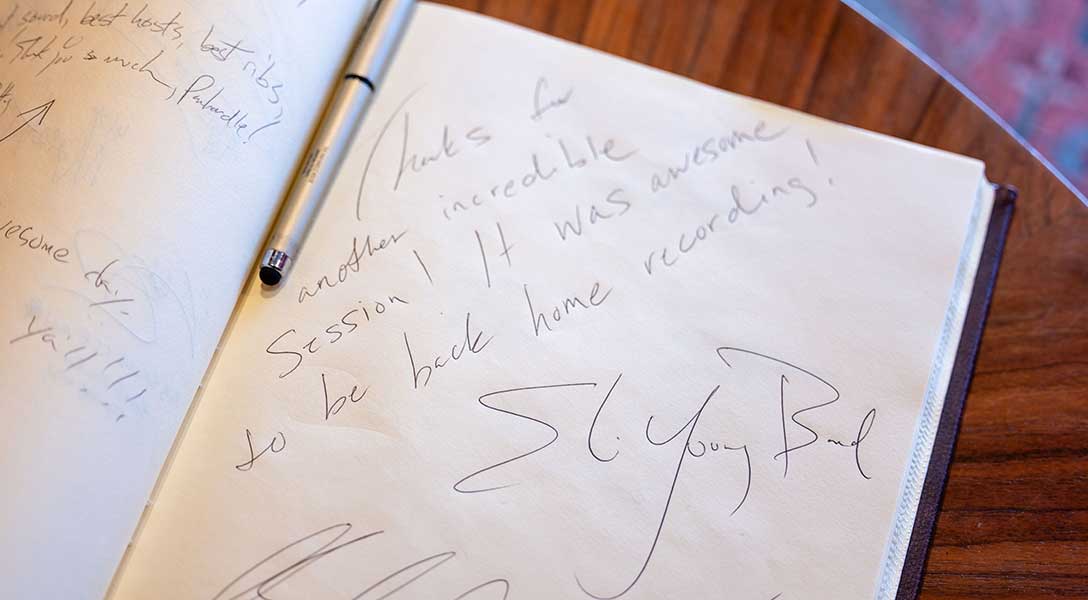 sound, best hosts, best ribs,
Thank you so much, Panhandle!
awesome day.
ya'll!!!!
Thanks for
another incredible
Session! It was awesome
to be back home recording!
Eli Young Band